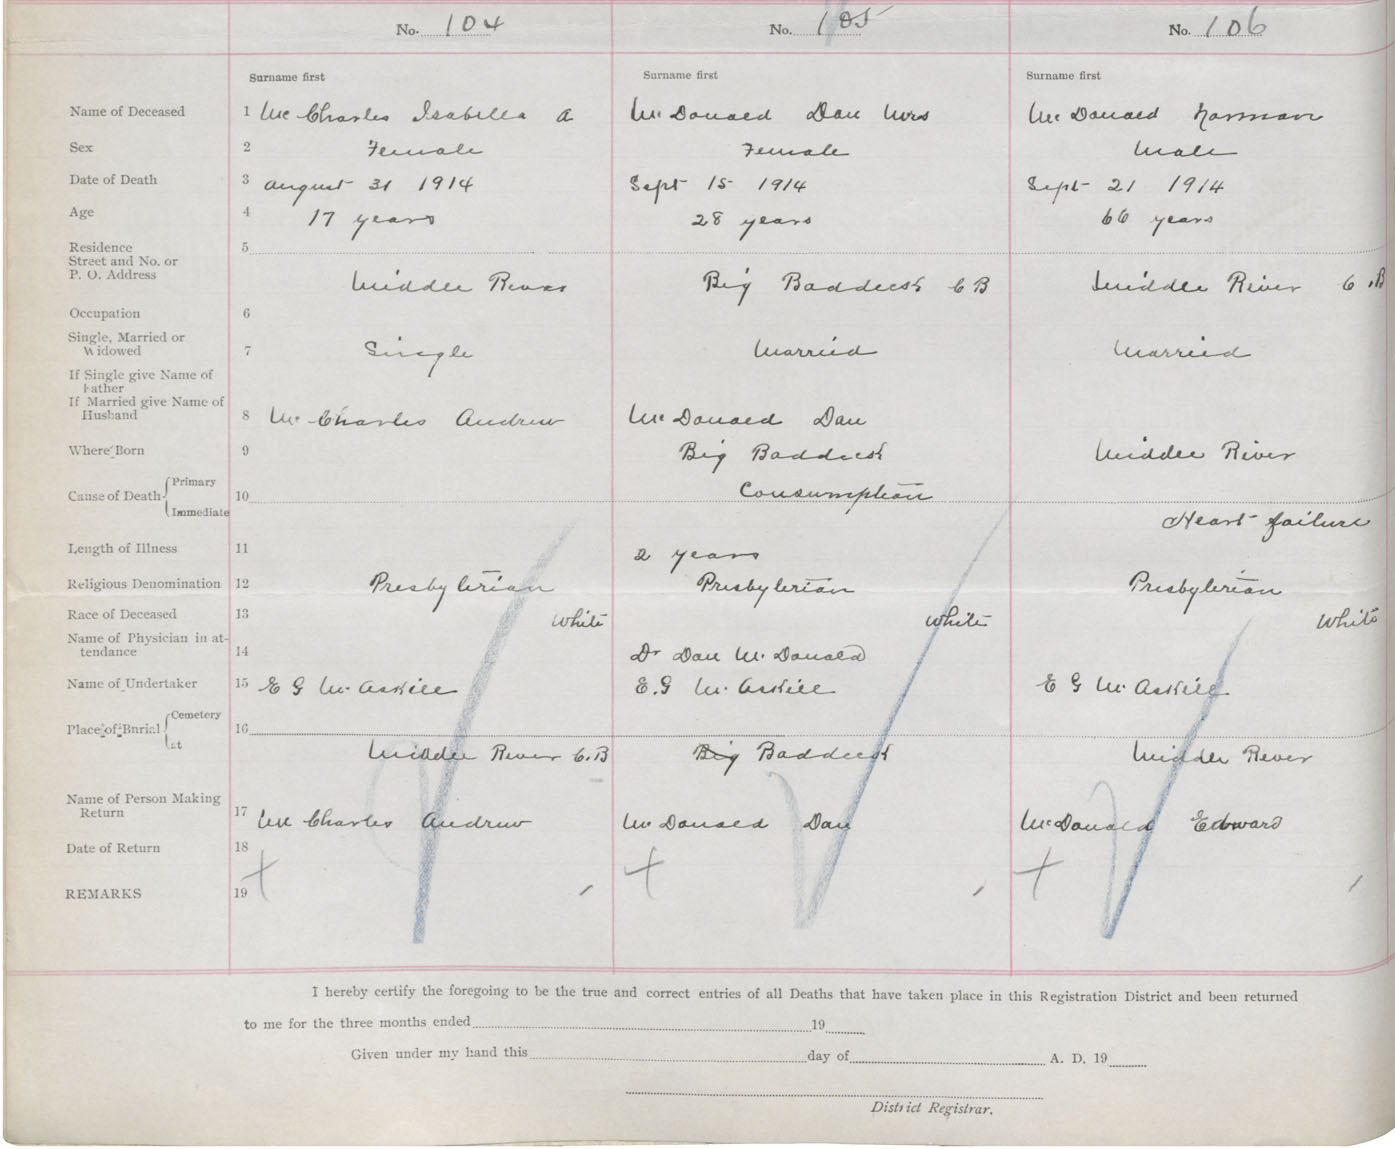 No. 104 No. 105 No. 106
Surname first Surname first Surname first
Name of Deceased 1 Mc Charles Isabella A Mc Donald Dan Mrs Mc Donald Norman
Sex 2 Female Female Male
Date of Death 3 August 31 1914 Sept 15 1914 Sept 21 1914
Age 4 17 years 28 years 66 years
Residence 5
Street and No. or
P. O. Address Middle River Big Baddeck C B Middle River C.B
Occupation 6
Single, Married or
Widowed 7 Single Married Married
If Single give Name of
Father
If Married give Name of
Husband 8 Mc Charles Andrew Mc Donald Dan
Where Born 9 Big Baddeck Middle River
Cause of Death Primary 10 Consumption
Immediate Heart failure
Length of Illness 11 2 years
Religious Denomination 12 Presbyterian Presbyterian Presbyterian
Race of Deceased 13 White White White
Name of Physician in at-
tendance 14 Dr Dan McDonald
Name of Undertaker 15 E G McAskill E.G McAskill E G McAskill
Place of Burial Cemetery 16
at Middle River C.B Big Baddeck Middle River
Name of Person Making
Return 17 Mc Charles Andrew Mc Donald Dan McDonald Edward
Date of Return 18
REMARKS 19
I hereby certify the foregoing to be the true and correct entries of all Deaths that have taken place in this Registration District and been returned
to me for the three months ended 19
Given under my hand this day of A. D. 19
District Registrar.